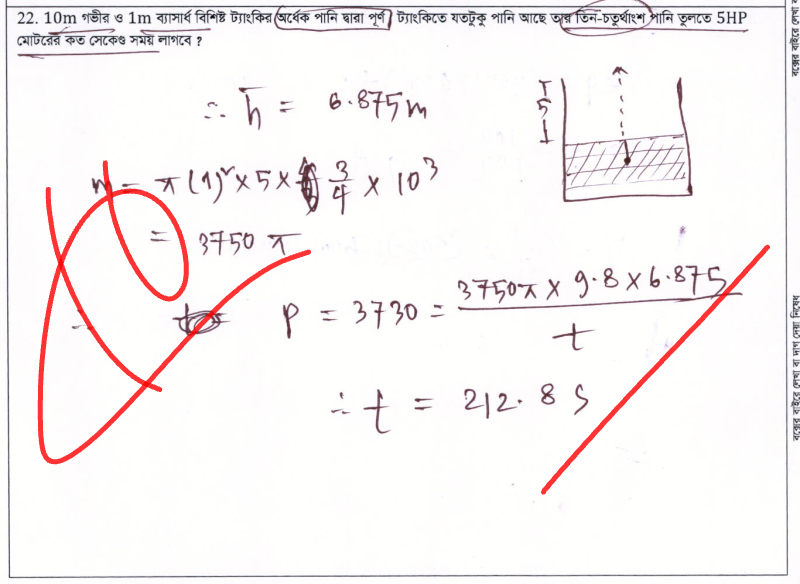 22. 10m গভীর ও 1m ব্যাসার্ধ বিশিষ্ট ট্যাংকির অর্ধেক পানি দ্বারা পূর্ণ। ট্যাংকিতে যতটুকু পানি আছে তার তিন-চতুর্থাংশ পানি তুলতে 5HP
মোটরের কত সেকেন্ড সময় লাগবে ?
∴ h̅ = 6.875m
5
m = π(1)² × 5 × 3/4 × 10³
= 3750 π
P = 3730 = 3750π × 9.8 × 6.875 / t
∴ t = 212.8 s
বক্সের বাইরে লেখা বা দাগ দেয়া নিষেধ